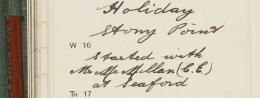 Holiday
Stony Point
W 16
Started with
Mr McMillan (C.E.)
at Seaford
Th 17